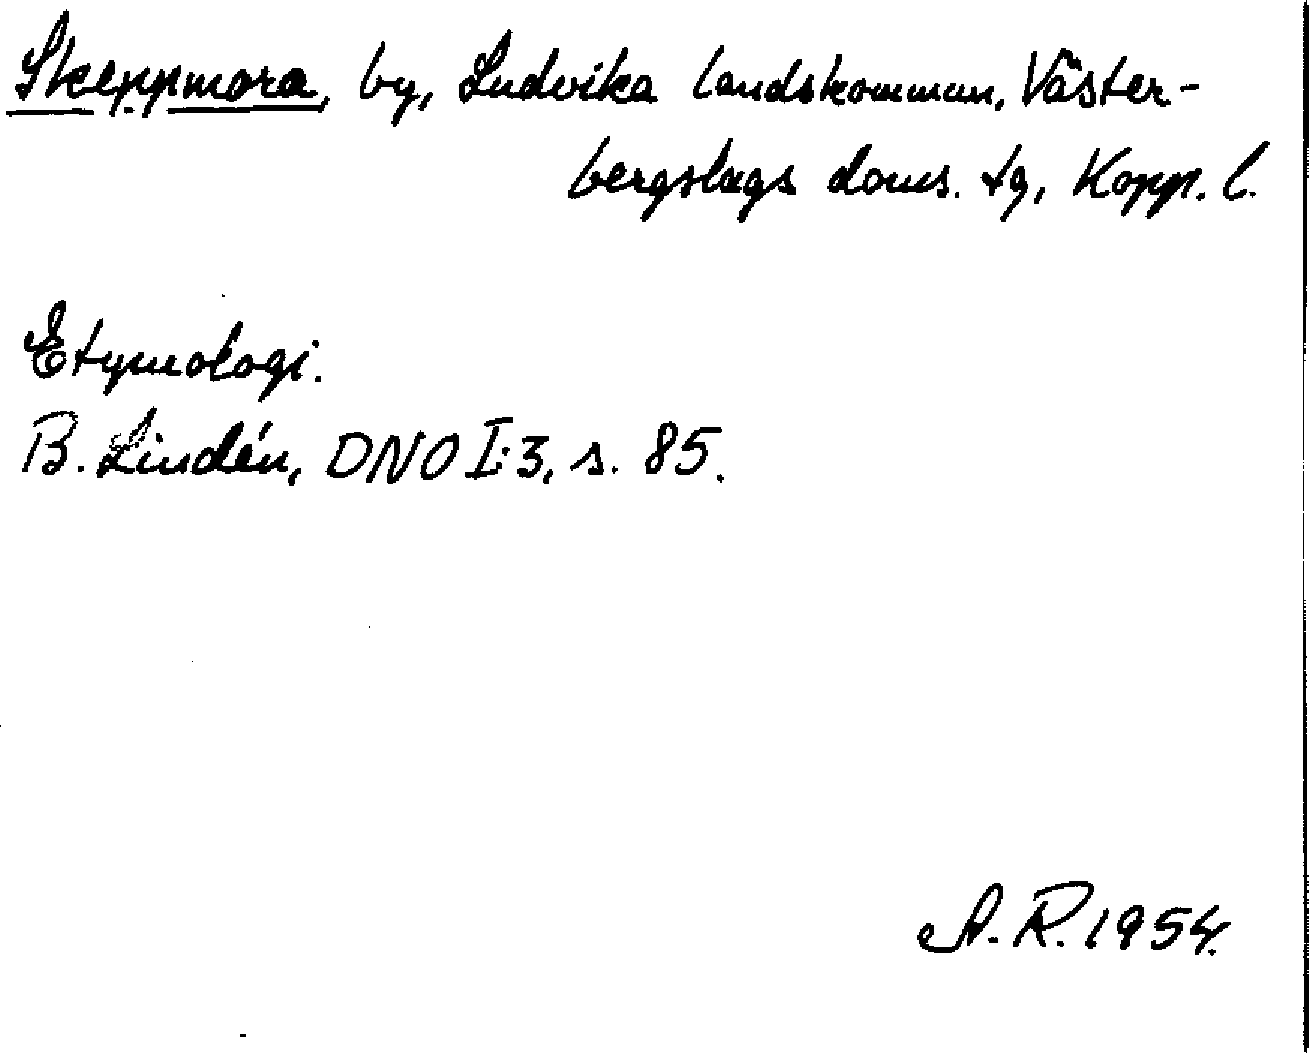 Skeppmora, by, Ludvika landskommun, Väster-
bergslags doms. tg, Kopp. l.
Etymologi.
B. Lindén, DNO I:3, s. 85.
A. R. 1954.